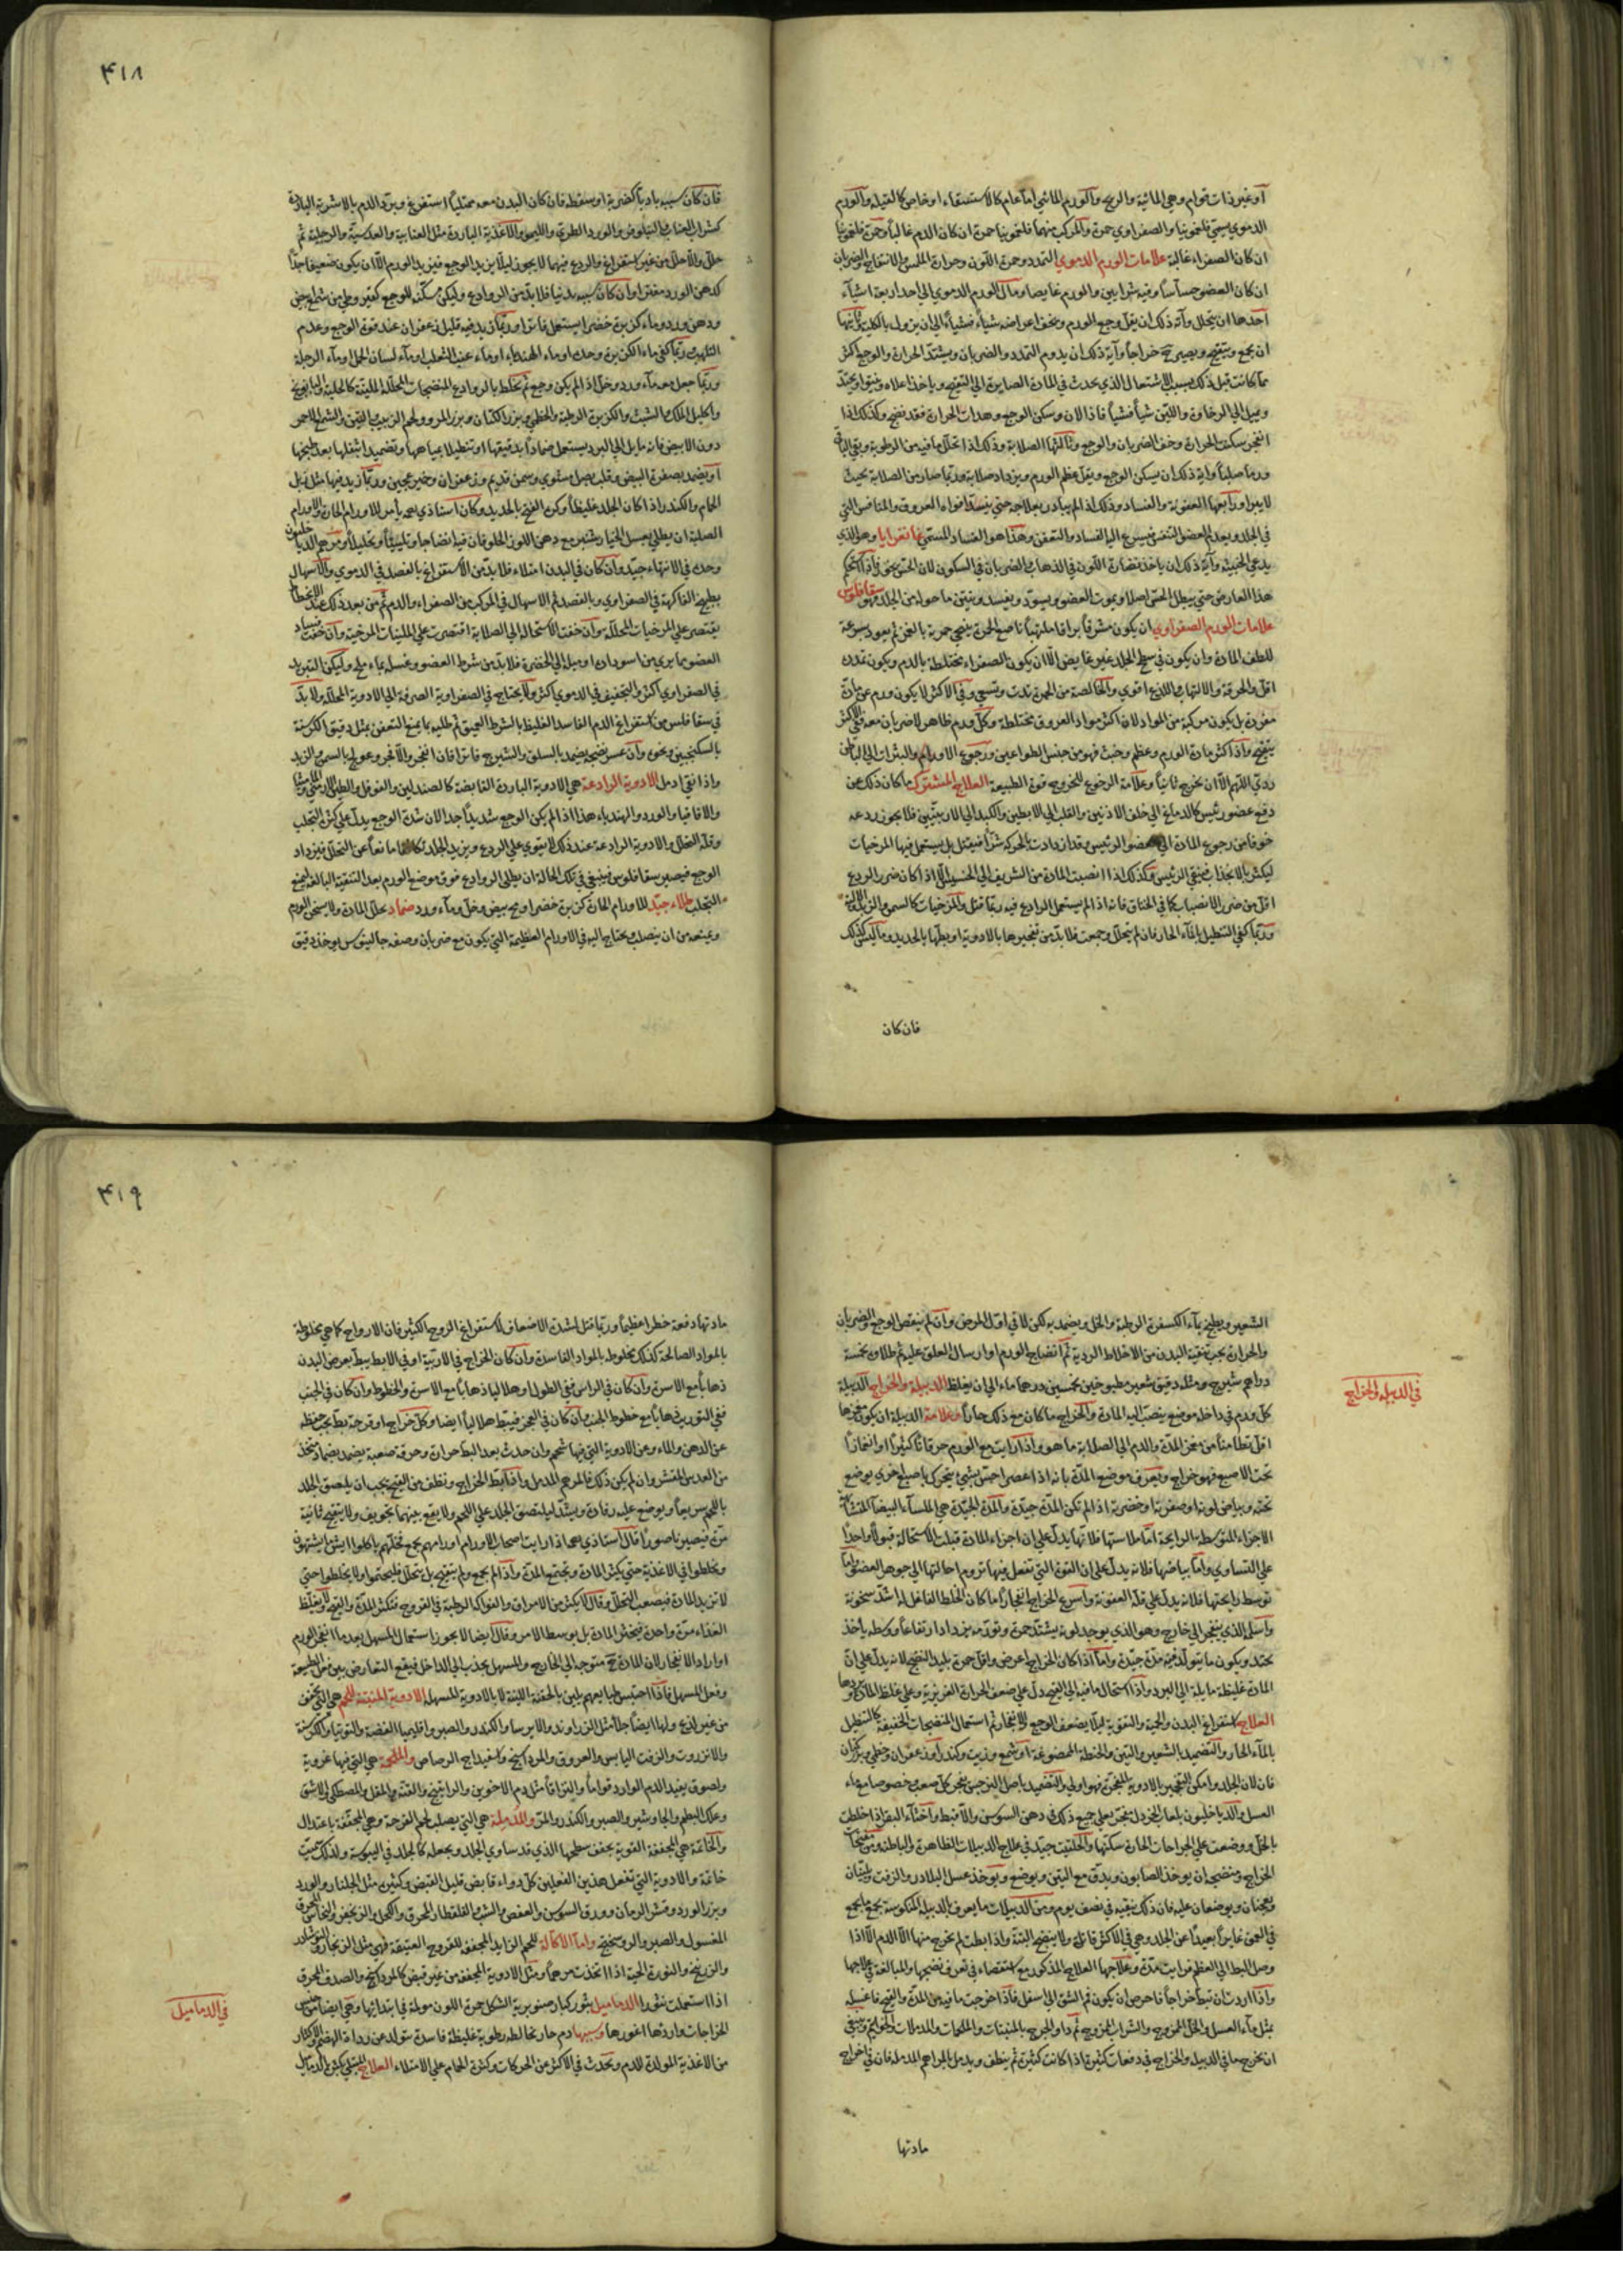 او غير ذات قوام وهي المائية والريح والورم المائي اما عام كالاستسقاء او خاص كالقيلة والورم
الدموي يسمى فلغمونيا والصفراوي حمرة والمركب منهما فلغمونيا حمرة ان كان الدم غالباً وحمرة فلغمونيا
ان كان الصفراء غالبة علامات الورم الدموي التمدد وحمرة اللون وحرارة الملمس والانتفاخ والضربان
ان كان العضو حساساً وفيه شرايين والورم غايصا ومآل الورم الدموي الى احد اربعة اشيآء
احدها ان يتحلل وآية ذلك ان يقل وجع الورم ويخف اعراضه شيأ فشيأ الى ان يزول بالكلية وثانيها
ان يجمع ويتقيح ويصير ح خراجا وآية ذلك ان يدوم التمدد والضربان ويشتد الحرارة والوجع اكثر
مما كانت قبل ذلك بسبب الاشتعال الذي يحدث في المادة الصايرة الى التقيح وياخذ اعلاه
ويميل الى الرخاوة واللين شيأ فشيأ فاذا لان وسكن الوجع وهدات الحرارة فقد نضج وكذلك اذا
انفجر سكنت الحرارة وخف الضربان والوجع وثالثها الصلابة وذلك اذا تحلل ما فيه من الرطوبة وبقي الباقي
ورما صلبا وآية ذلك ان يسكن الوجع ويقل عظم الورم ويزداد صلابة وربما صار من الصلابة بحيث
لا يبرا ورابعها العفونة والفساد وذلك اذا لم يبادر بعلاجه حتى ينسد افواه العروق والمنافس التي
في الجلد ويعدم العضو التنفس فيسرع اليه الفساد والتعفن وهذا هو الفساد المسمى غانغرايا وهو الذي
يدعى الخبيثة وآية ذلك ان ياخذ نضارة اللون في الذهاب والضربان في السكون لان الحس يخف واذا استحكم
هذا العارض حتى يبطل الحس اصلا ويموت العضو ويسود ويفسد وينتن ما حوله من الجلد فهو سقاقلوس
علامات الورم الصفراوي ان يكون مشرقا براقا ملتهبا ناصع الحمرة ينضحي حمرته بالغمز ثم يعود بسرعة
للطف المادة وان يكون في سطح الجلد غير غايض الا ان يكون الصفراء مختلطة بالدم ويكون تمدده
اقل والحرقة والالتهاب واللذع اقوى والخالصة من الحمرة تدب وتسعى وفي الاكثر لا يكون ورم عن مادة
مفردة بل يكون مركبة من المواد لان اكثر مواد العروق مختلطة وكل ورم ظاهر لا ضربان معه ففي الاكثر
يتقيح واذا كثر مادة الورم وعظم وخبث فهو من جنس الطواعين ورجوع الاورام والبثرات الى الباطن
ردي اللهم الا ان يخرج ثانياً وعلامة الرجوع للخروج قوة الطبيعة العلاج المشترك ما كان ذلك عن
دفع عضو رئيس كالدماغ الى خلف الاذنين والقلب الى الابطين والكبد الى الاربيتين فلا يجوز ردعه
خوفا من رجوع المادة الى العضو الرئيس وقد ازدادت بالحركة شراً فيقتل بل يستعمل فيها المرخيات
ليكثر بالانجذاب فينقي الرئيس وكذلك اذا انصبت المادة من الشريف الى الخسيس الا اذا كان ضرر الردع
اقل من ضرر الانصباب كما في الخناق فانه اذا لم يستعمل الرادع فيه ربما قتل والمرخيات كالسمن والزبد
وربما كفى التنطيل بالمآء الحار فان لم يتحلل وجمعت فلا بد من تفجيرها بالادوية او بطها بالحديد وما ليس كذلك
فان كان
٤١٨
فان كان سببه بادياً كضربة او سقطة فان كان البدن معه ممتلياً استفرغ وبرد الدم بالاشربة الباردة
كشراب العناب والنيلوفر والورد الطري والليمو والاغذية الباردة مثل العنابية والعدسية والرجلية ثم
حلل والا حلل من غير استفراغ والردع فيهما لا يجوز ليلا يزيد الوجع فيزيد الورم الا ان يكون ضعيفا جداً
كدهن الورد مفترا وان كان سببه بدنيا فلا بد من الروادع وليكن مسكنة للوجع كقيروطي من شمع ابيض
ودهن ورد وماء كزبرة خضرا يستعمل فاترا وربما زيد فيه قليل زعفران عند قوة الوجع وعدم
التلهب وربما كفى ماء الكزبرة وحده او ماء الهندباء او ماء عنب الثعلب او مآء لسان الحمل او مآء الرجلة
وربما جعل معه مآء ورد وخل اذا لم يكن وجع ثم يخلط بالروادع المنضجات المحللة الملينة كالحلبة والبابونج
واكليل الملك والشبث والكزبرة الرطبة والخطمي وبزر الكتان وبزر المرو ولحم الزبيب والتين والشمع الاحمر
دون الابيض فانه مايل الى البرد يستعمل ضماداً بدقيقها او تنطيلا بمياهها وتضميدا بثفلها بعد طبخها
او يضمد بصفرة البيض وقلب بصل مشوي وسمن قديم وزعفران وخمير عجين وربما زيد فيها مثل زبل
الحمام والكندر اذا كان الجلد غليظاً وكره الفتح بالحديد وكان استاذي رحمه يأمر للاورام الحارة والاورام
الصلبة ان يطلى بعسل الخيارشنبر مع دهن اللوز الحلو فان فيه انضاجا وتلييناً وتحليلاً ومرهم الدياخليون
وحده في الانتهاء جيد وان كان في البدن امتلاء فلا بد من الاستفراغ بالفصد في الدموي والاسهال
بطبيخ الفاكهة في الصفراوي وبالفصد ثم الاسهال في المركب من الصفراء والدم ثم من بعد ذلك عند الانحطاط
يقتصر على المرخيات المحللة وان خفت الاستحالة الى الصلابة اقتصرت على الملينات المرخية وان خفت فساد
العضو بما يرى من اسوداد او ميله الى الخضرة فلا بد من شرط العضو وغسله بماء ملح وليكن التبريد
في الصفراوي اكثر والتجفيف في الدموي اكثر ولا يحتاج في الصفراوية الصرفة الى الادوية المحللة ولا بد
في سقاقلوس من استفراغ الدم الفاسد الغليظ بالشرط العميق ثم طليه بما يمنع التعفن بمثل دقيق الكرسنة
بالسكنجبين ونحوه وان عسر نضجه يضمد بالسلق والشيرج فاترا فان انفجر والا فجر وعولج بالسمن والزبد
واذا نقي ادمل الادوية الرادعة هي الادوية الباردة القابضة كالصندلين والفوفل والطين الارمني والماميثا
والاقاقيا والورد والهندباء هذا اذا لم يكن الوجع شديداً جدا لان شدة الوجع يدل على كثرة التجلب
وقلة التحلل والادوية الرادعة عند ذلك لا يقوى على الردع ويزيد الجلد تكاثفا مانعاً عن التحلل فيزداد
الوجع فيصير سقاقلوس فينبغي في تلك الحالة ان يطلى الروادع فوق موضع الورم بعد التنقية البالغة ليمنع
التجلب طلاء جيد للاورام الحارة كزبرة خضرا ومح بيض وخل ومآء ورد ضماد يحلل المادة ولا يسخن الورم
ويمنعه من ان ينصلب ويحتاج اليه في الاورام العظيمة التي يكون مع ضربان وصفه جالينوس يوخذ دقيق
الشعير ويطبخ بمآء الكسفرة الرطبة والخل ويضمد به لكن لا في اول المرض وان لم ينقص الوجع والضربان
والحرارة يجب تنقية البدن من الاخلاط الردية ثم انضاج الورم او ارسال العلق عليه ثم طلاؤه بخمسة
دراهم شيرج ومثله دقيق شعير مطبوخين بخمسين درهما ماء الى ان يغلظ الدبيلة والخراج الدبيلة
كل ورم في داخله موضع ينصب اليه المادة والخراج ما كان مع ذلك حاراً وعلامة الدبيلة ان يكون مغمزها
اقل تطامناً من مغمز المدة والدم الى الصلابة ما هو واذا رايت مع الورم حرقانا كثيراً او انغمازاً
تحت الاصبع فهو خراج ويعرف موضع المدة بانه اذا عصر احس بشيئ يتحرك باصبع اخرى يوضع
تحته وبياض لونه او صفرته او خضرته اذا لم تكن المدة جيدة والمدة الجيدة هي الملسآء البيضآء المتشابهة
الاجزاء المتوسطة الرايحة اما ملاستها فلانها يدل على ان اجزاء المادة قبلت الاستحالة قبولا واحداً
على التساوي واما بياضها فلانه يدل على ان القوة التي تفعل فيها تروم احالتها الى جوهر العضو واما
توسط رايحتها فلانه يدل على قلة العفونة واسرع الخراج انفجاراً ما كان الخلط الفاعل له اشد سخونة
واسلم الذي ينفجر الى خارج وهو الذي يوجد لونه يشتد حمرة وتورمه يزداد ارتفاعاً ووسطه يأخذ
يحتد ويكون ما يتولد فيه مدة جيدة واما اذا كان الخراج اعرض واقل حمرة بليد النضج لانه يدل على ان
المادة غليظة مايلة الى البرد واذا استحال ما فيه الى القيح دل على ضعف الحرارة الغريزية وعلى غلظ المادة وبردها
العلاج استفراغ البدن والحمية والتقوية ليلا يضعف الوجع والانفجار ثم استعمال المنضجات الخفيفة كالتنطيل
بالمآء الحار والتضميد بالشعير والتين والحنطة الممضوغة او شمع وزيت وكندر او زعفران وخطمي وبزر كتان
فان لان الجلد وامكن التفجير بالادوية المفجرة فهو اولى والتضميد باصل النرجس يفجر كل صعب وخصوصا مع ماء
العسل والدياخليون بلعاب الخردل يفجر ويغني عن جميع ذلك وفي دهن السوسن والاقنيط واخثاء البقر اذا خلطت
بالخل ووضعت على الجراحات الحارة سكنتها والحلتيت جيد في علاج الدبيلات الظاهرة والباطنة ومن مفتحات
الخراج ومنضجه ان يوخذ الصابون ويدق مع التين ويوضع ويوخذ عسل البلادر والزفت ويليّنان
ويعجنان ويوضعان عليه فان ذلك ينقيه في نصف يوم ومن الدبيلات ما يعرف بالدبيلة المنكوسة يجمع ما يجمع
في العمق غايراً بعيداً عن الجلد وهي في الاكثر قاتلة ولا ينفتح البتة واذا بطت لم يخرج منها الا الدم الا اذا
وصل البط الى العظم فرايت مدة وعلاجها العلاج المذكور مع استقصاء في تعرف نضجها والمبالغة في علاجها
واذا اردت ان تبط خراجاً فاحرص ان يكون فم الشق الى اسفل فاذا خرجت ما فيه من المدة والقيح فاغسله
بمثل مآء العسل والخل الممزوج والشراب الممزوج ثم داو الجرح بالمنبتات والملحمات والمدملات والخواتم وينبغي
ان يخرج ما في الدبيلة والخراج في دفعات كثيرة اذا كانت كثيرة ثم ينظف ويدمل بالمراهم المدملة فان في اخراج
مادتها
في الدبيلة والخراج
٤١٩
مادتها دفعة خطرا عظيماً وربما قتل لشدة الاضعاف لاستفراغ الروح الكثير فان الارواح كما هي مخلوطة
بالمواد الصالحة كذلك مخلوطة بالمواد الفاسدة وان كان الخراج في الاربية او في الابط يبط بعرض البدن
ذهاباً مع الاسرة وان كان في الراس ففي الطول او هلاليا ذهاباً مع الاسرة والخطوط وان كان في الجنب
ففي التوريب ذهاباً مع خطوط الجنب وان كان في العجز فيبط هلالياً ايضا وكل خراج او قرحة بط يجب حفظه
عن الدهن والماء وعن الادوية التي فيها شحم وان حدث بعد البط حرارة وحرقة صعبة يضمد بضماد متخذ
من العدس المقشر وان لم يكن ذلك فالمرهم المدمل واذا بط الخراج ونظف من القيح يجب ان يلصق الجلد
باللحم سريعا ويوضع عليه رفادة ويشد ليلتصق الجلد على اللحم ولا يقع بينهما تجويف ولا يتقيح ثانية
مرة فيصير ناصورا قال استاذي رحمه اذا رايت اصحاب الاورام اورامهم يجمع فخلهم ياكلوا ايش يشتهون
ويخلطوا في الاغذية حتى يكثر المادة وتجتمع المدة واذا لم يجمع ولم يتقيح بل يتحلل فليحتموا ولا يخلطوا حتى
لا تزيد المادة فيصعب التحلل وقال لا يكثر من الامراق والفواكه الرطبة في القروح فتكثر المدة والقيح ولا يغلظ
الغذاء مرة واحدة فيخثر المادة بل يوسط الامر وقال ايضا لا يجوز استعمال المسهل بعد ما انفجر الورم
او اراد الانفجار لان المادة ح متوجه الى الخارج والمسهل يجذب الى الداخل فيقع التعارض بين فعل الطبيعة
وفعل المسهل فاذا احتبس طبايعهم يلين بالحقنة اللينة لا بالادوية المسهلة الادوية المنبتة للحم هي التي تجفف
من غير لذع ولها ايضاً جلاً مثل الزراوند والايرسا والكندر والصبر واقليميا الفضة والتوتيا والكرسنة
والانزروت والزفت اليابس والعروق والمرداسنج واسفيداج الرصاص والملحمة هي التي فيها غروية
ولصوق يفيد الدم الوارد قواماً والتزاقاً مثل دم الاخوين والراتينج والقنة والمقل والمصطكي والاشق
وعلك البطم والجاوشير والصبر والكندر والمر والمدملة هي التي يصلب لحم القرحة وهي المجففة باعتدال
والخاتمة هي المجففة القوية يجفف سطحها الذي قد ساوي الجلد ويجعله كالجلد في اليبوسة ولذلك سميت
خاتمة والادوية التي تفعل هذين الفعلين كل دواء قابض قليل القبض وكثيره مثل الجلنار والورد
وبزر الورد وقشر الرمان وورق السوسن والعفص والشب والقلقطار المحرق والكحل والزنجفر والنحاس المحرق
المغسول والصبر والروسختج واما الاكالة للحم الزايد المجففة للقروح العتيقة فهي مثل الزنجار والنوشادر
والزرنيخ والنورة الحية اذا اتخذت مرهماً ومثل الادوية المجففة من غير قبض كالمرداسنج والصدف المحرق
اذا استعملت نثورا الدماميل بثور كبار صنوبرية الشكل حمرة اللون مولمة في ابتدائها وهي ايضا من جنس
الخراجات واردئها اغورها وسببها دم حار يخالطه رطوبة غليظة فاسدة تتولد عن رداءة الهضم والاكثار
من الاغذية المولدة للدم ويحدث في الاكثر من الحركات وكثرة الحمام على الامتلاء العلاج المبتلى بكثرة الدماميل
في الدماميل